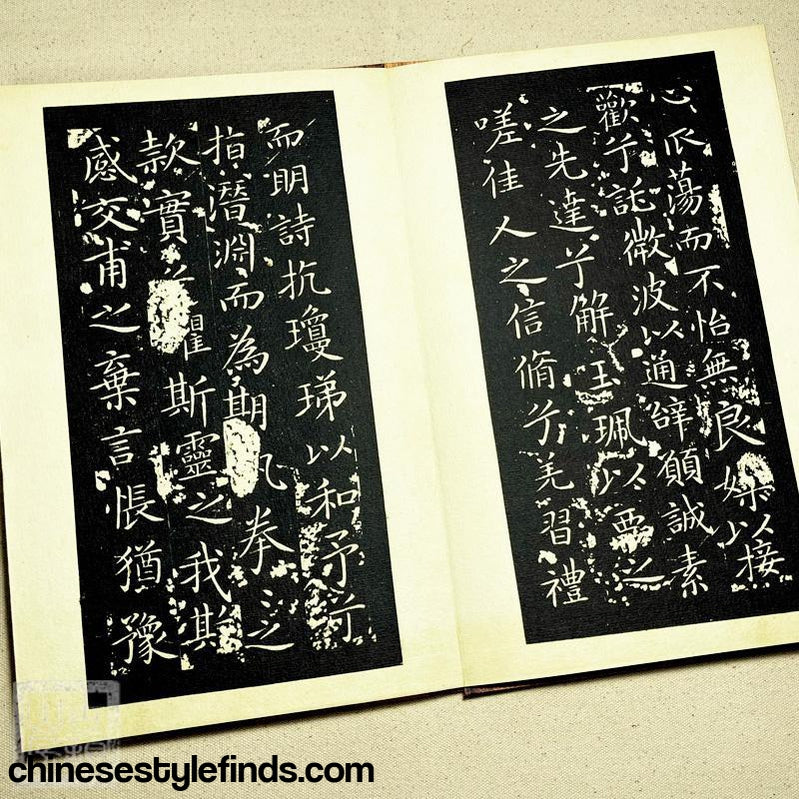 心蕩而不怡無良媒以接
歡兮託微波以通辭願誠素
之先達兮解玉珮以要之
嗟佳人之信脩兮羌習禮
而明詩抗瓊珶以和予兮
指潛淵而為期拳〻之
款實斯靈之我欺
感交甫之棄言悵猶豫
chinesestylefinds.com